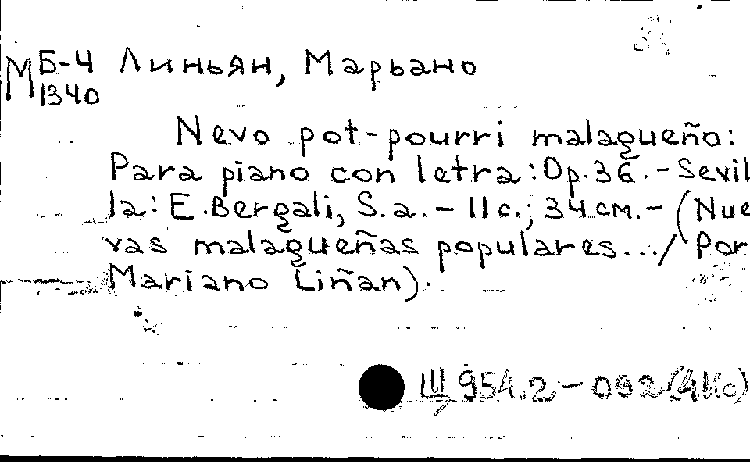 М Б-4 Линьян, Марьано
1340
Nevo pot-pourri malagueño:
Para piano con letra: Op. 36. - Sevil
la: E. Bergali, S. a. - 11 с.; 34 см. - (Nue
vas malagueñas populares.../ Por
Mariano Liñan).
Щ 954.2-